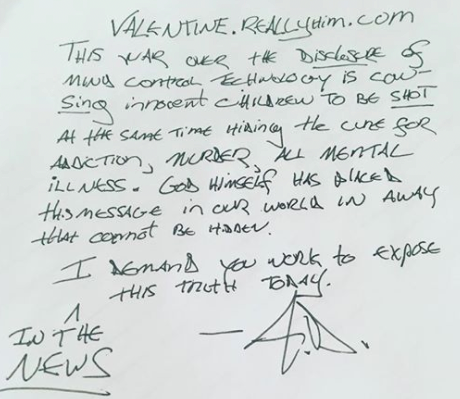 VALENTINE.REALLyHim.com
THIS WAR OVER THE DISCLOSURE OF
MIND CONTROL TECHNOLOGY IS CAU-
SING INNOCENT CHILDREN TO BE SHOT
AT THE SAME TIME HIDING the CURE FOR
ADDICTION, MURDER, ALL MENTAL
ILLNESS. GOD HIMSELF HAS PLACED
this MESSAGE in OUR WORLD IN A WAY
that cannot BE HIDDEN.
I DEMAND you WORK to EXPOSE
THIS TRUTH TODAY.
IN THE
NEWS